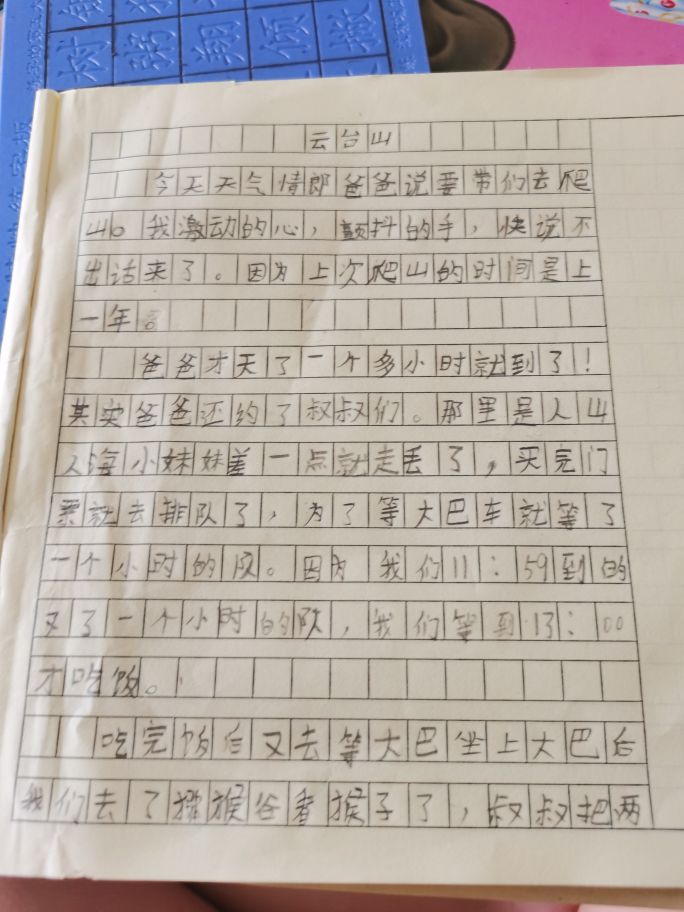 云台山
今天天气情郎爸爸说要带们去爬
山。我激动的心，颤抖的手，快说不
出话来了。因为上次爬山的时间是上
一年
爸爸才天了一个多小时就到了！
其实爸爸还约了叔叔们。那里是人山
人海小妹妹差一点就走丢了，买完门
票就去排队了，为了等大巴车就等了
一个小时的队。因为我们11：59到的
又了一个小时的队，我们等到13：00
才吃饭。
吃完饭后又去等大巴坐上大巴后
我们去了猕猴谷看猴子了，叔叔把两
树
翔
倾